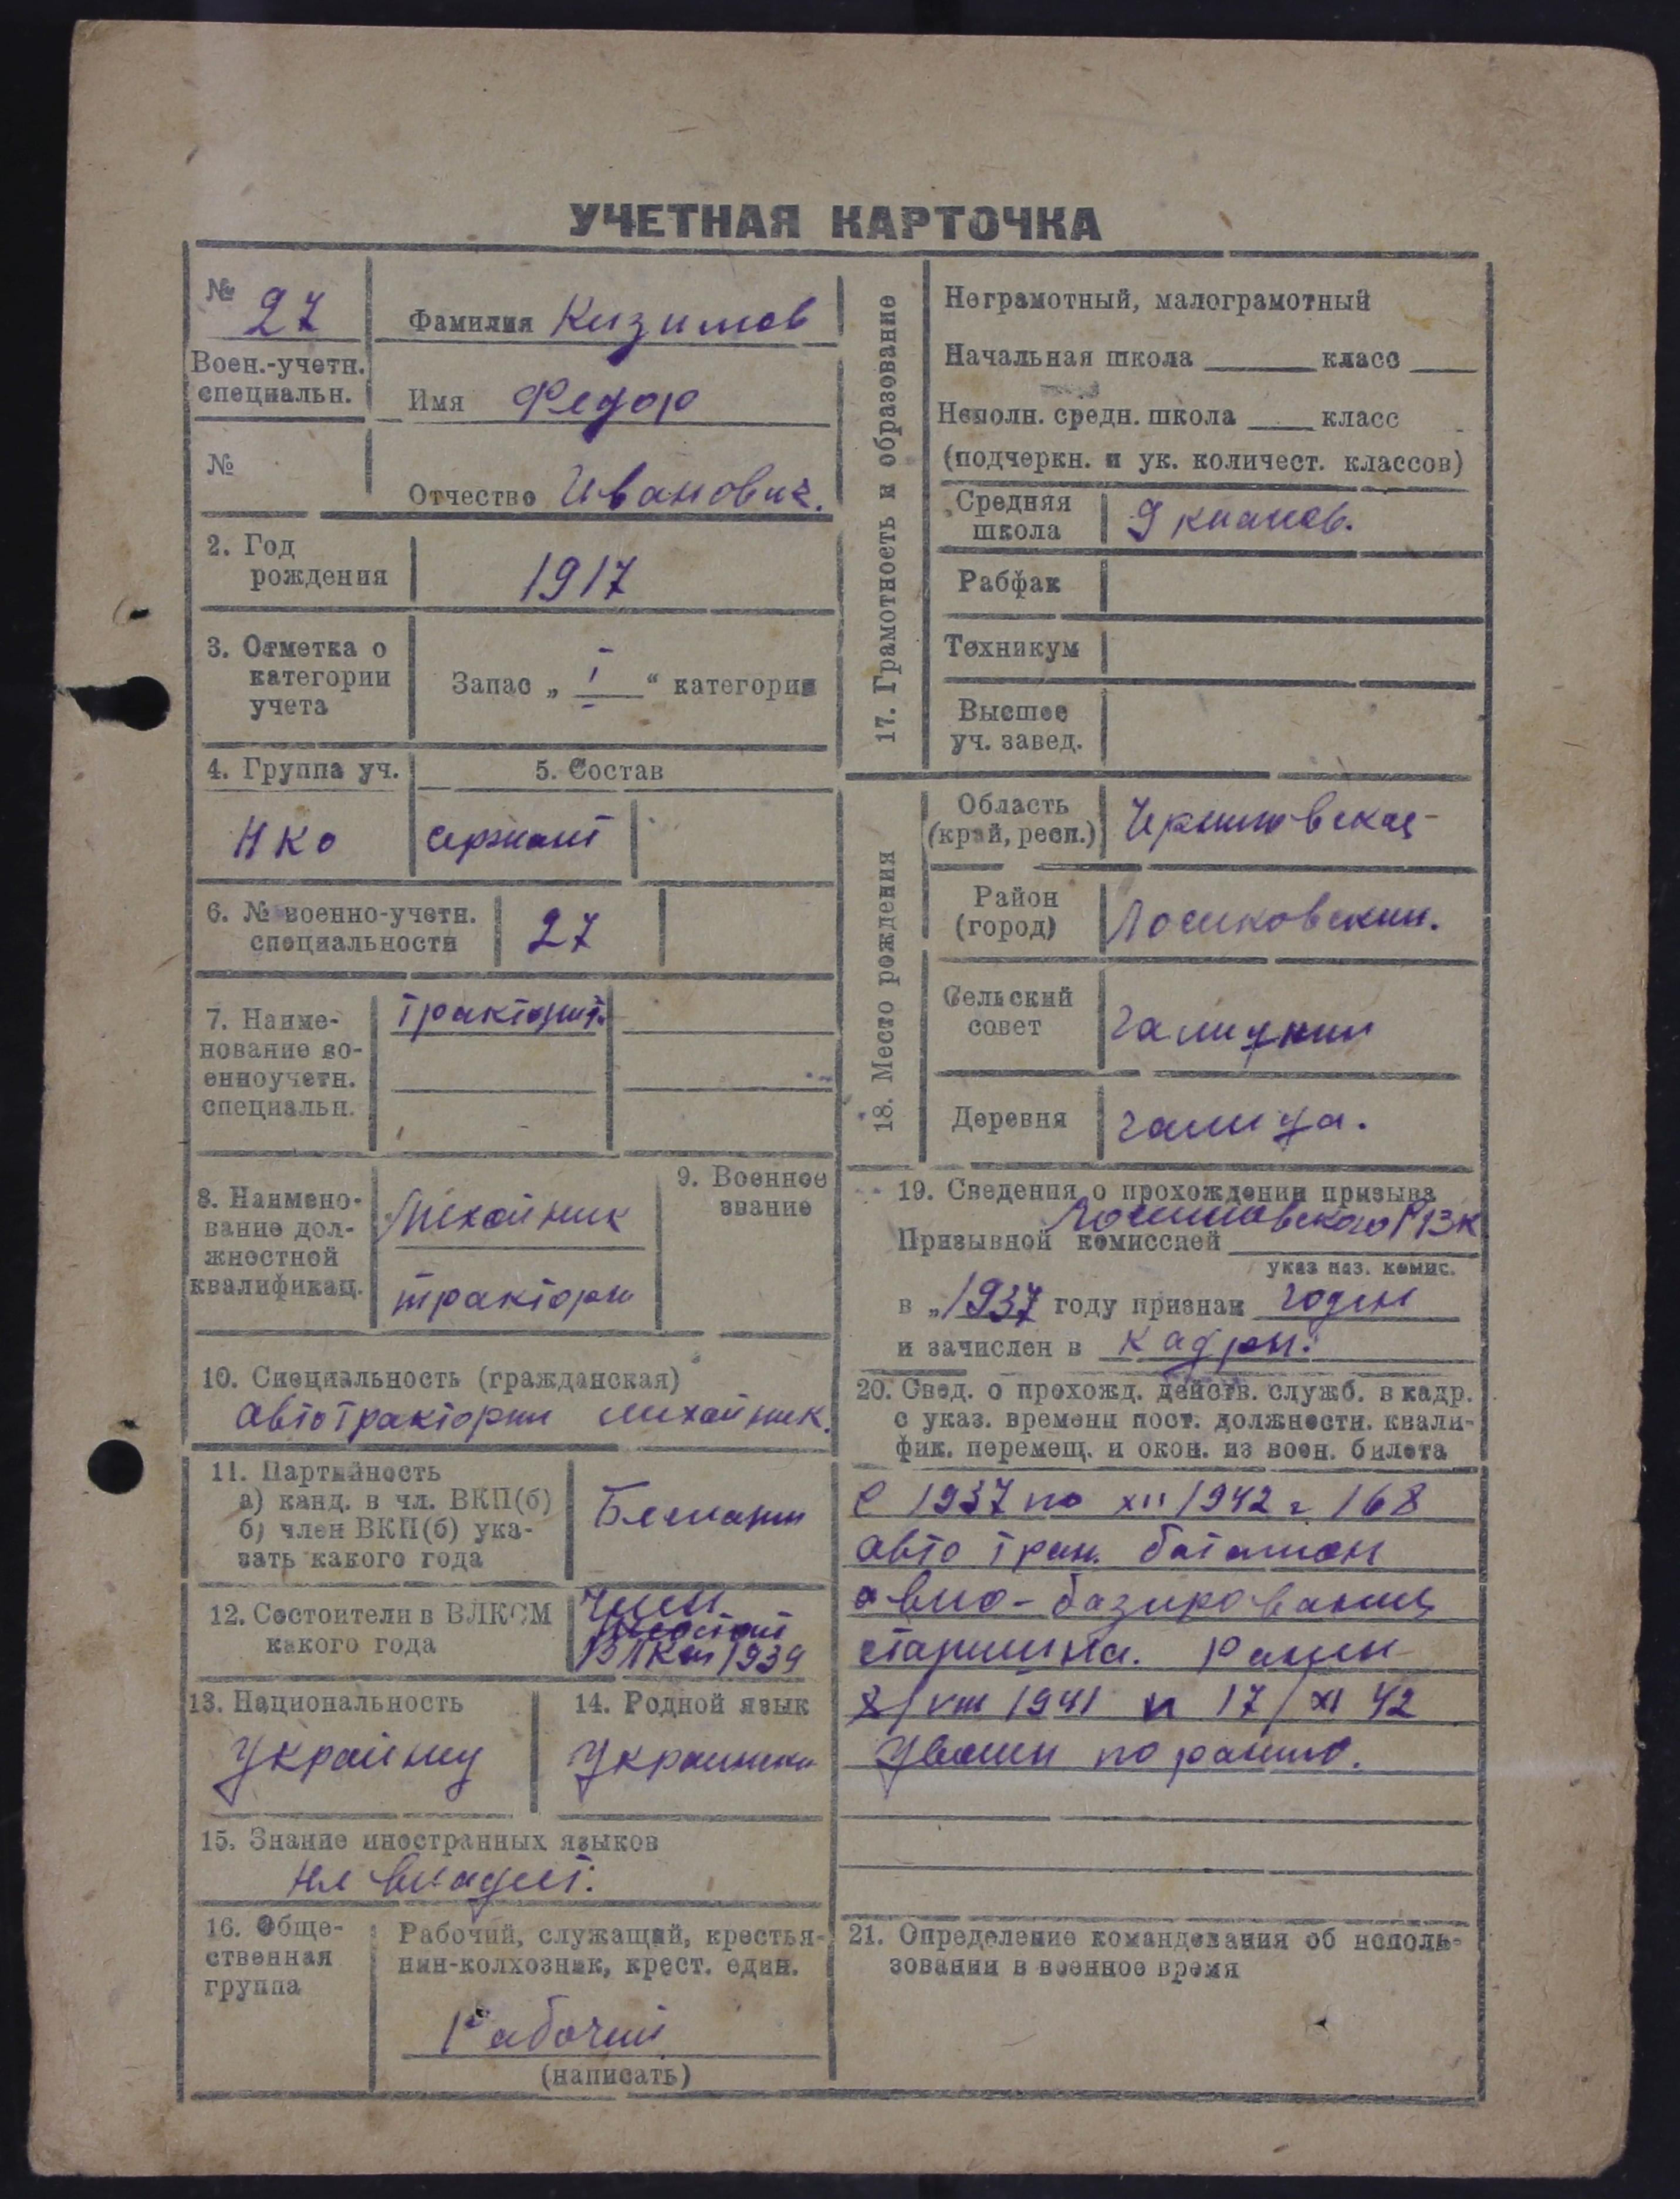 УЧЕТНАЯ КАРТОЧКА
№ 27
Фамилия Кизимов
Воен.-учетн. специальн.
Имя Федор
№
Отчество Иванович.
2. Год
рождения
1917
3. Отметка о
категории
учета
Запас „ I “ категории
4. Группа уч.
5. Состав
НКО
сержант
6. № военно-учетн.
специальности
27
7. Наиме-
нование во-
енноучетн.
специальн.
8. Наимено-
вание дол-
жностной
квалификац.
Механик
9. Военное
звание
10. Специальность (гражданская)
11. Партийность
а) канд. в чл. ВКП(б)
б) член ВКП(б) ука-
зать какого года
12. Состоители в ВЛКСМ
какого года
Член
ВЛКСМ 1939
13. Национальность
14. Родной язык
15. Знание иностранных языков
не владеет.
16. Обще-
ственная
группа
Рабочий, служащий, крестья-
нин-колхозник, крест. един.
Рабочий
(написать)
17. Грамотность и образование
Неграмотный, малограмотный
Начальная школа класс
Неполн. средн. школа класс
(подчеркн. и ук. количест. классов)
Средняя
школа
9 классов.
Рабфак
Техникум
Высшее
уч. завед.
18. Место рождения
Область
(край, респ.)
Черниговская
Район
(город)
Сельский
совет
Деревня
Галица.
19. Сведения о прохождении призыва
Призывной комиссией
указ наз. комис.
в „1937 году признан годен
и зачислен в кадры.
20. Свед. о прохожд. действ. служб. в кадр.
с указ. времени пост. должностн. квали-
фик. перемещ. и окон. из воен. билета
с 1937 по XII 1942 г 168
авто тран. батальон
авио-базирования
старшина. Ранен
/VIII 1941 и 17/XI 42
21. Определение командования об исполь-
зовании в военное время